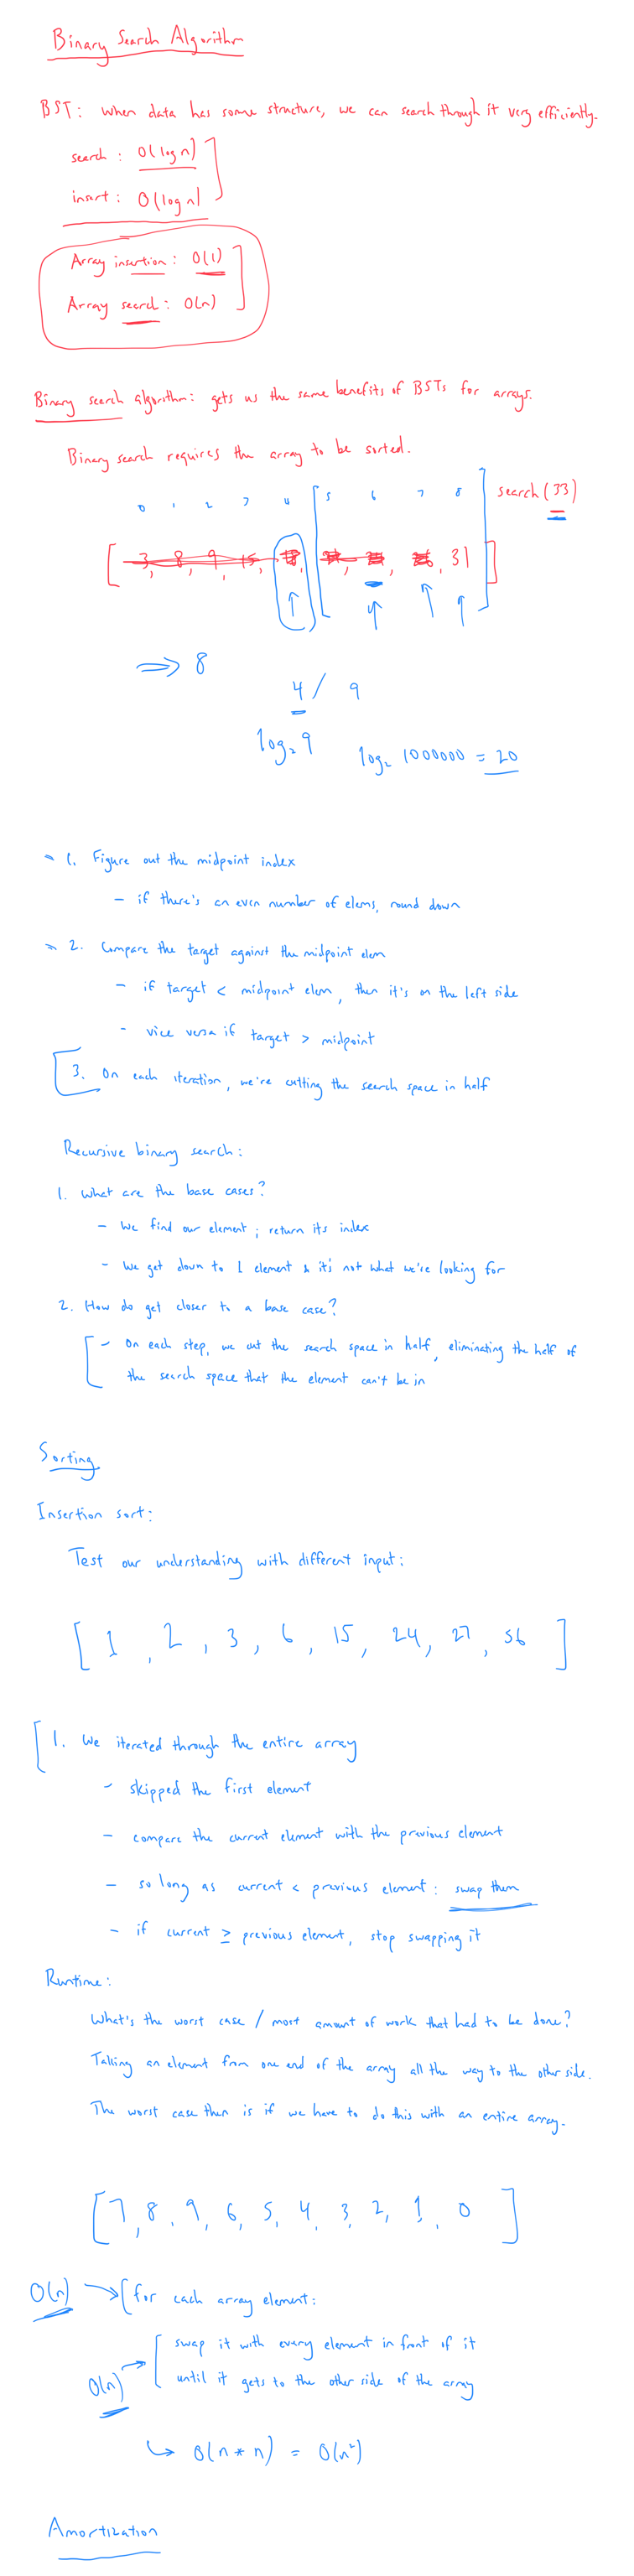 Binary Search Algorithm
BST: when data has some structure, we can search through it very efficiently.
search: O(log n)
insert: O(log n)
Array insertion: O(1)
Array search: O(n)
Binary search algorithm: gets us the same benefits of BSTs for arrays.
Binary search requires the array to be sorted.
0 1 2 3 4 5 6 7 8 search(33)
[ 3, 8, 9, 15, , , , , 31 ]
⇒ 8
4 / 9
log₂ 9 log₂ 1000000 = 20
1. Figure out the midpoint index
- if there's an even number of elems, round down
2. Compare the target against the midpoint elem
- if target < midpoint elem, then it's on the left side
- vice versa if target > midpoint
3. On each iteration, we're cutting the search space in half
Recursive binary search:
1. What are the base cases?
- We find our element; return its index
- We get down to 1 element & it's not what we're looking for
2. How do get closer to a base case?
- On each step, we cut the search space in half, eliminating the half of
the search space that the element can't be in
Sorting
Insertion sort:
Test our understanding with different input:
[ 1, 2, 3, 6, 15, 24, 27, 56 ]
1. We iterated through the entire array
- skipped the first element
- compare the current element with the previous element
- so long as current < previous element: swap them
- if current ≥ previous element, stop swapping it
Runtime:
What's the worst case / most amount of work that had to be done?
Taking an element from one end of the array all the way to the other side.
The worst case then is if we have to do this with an entire array.
[7, 8, 9, 6, 5, 4, 3, 2, 1, 0 ]
O(n) → for each array element:
swap it with every element in front of it
O(n) → until it gets to the other side of the array
↳ O(n * n) = O(n²)
Amortization